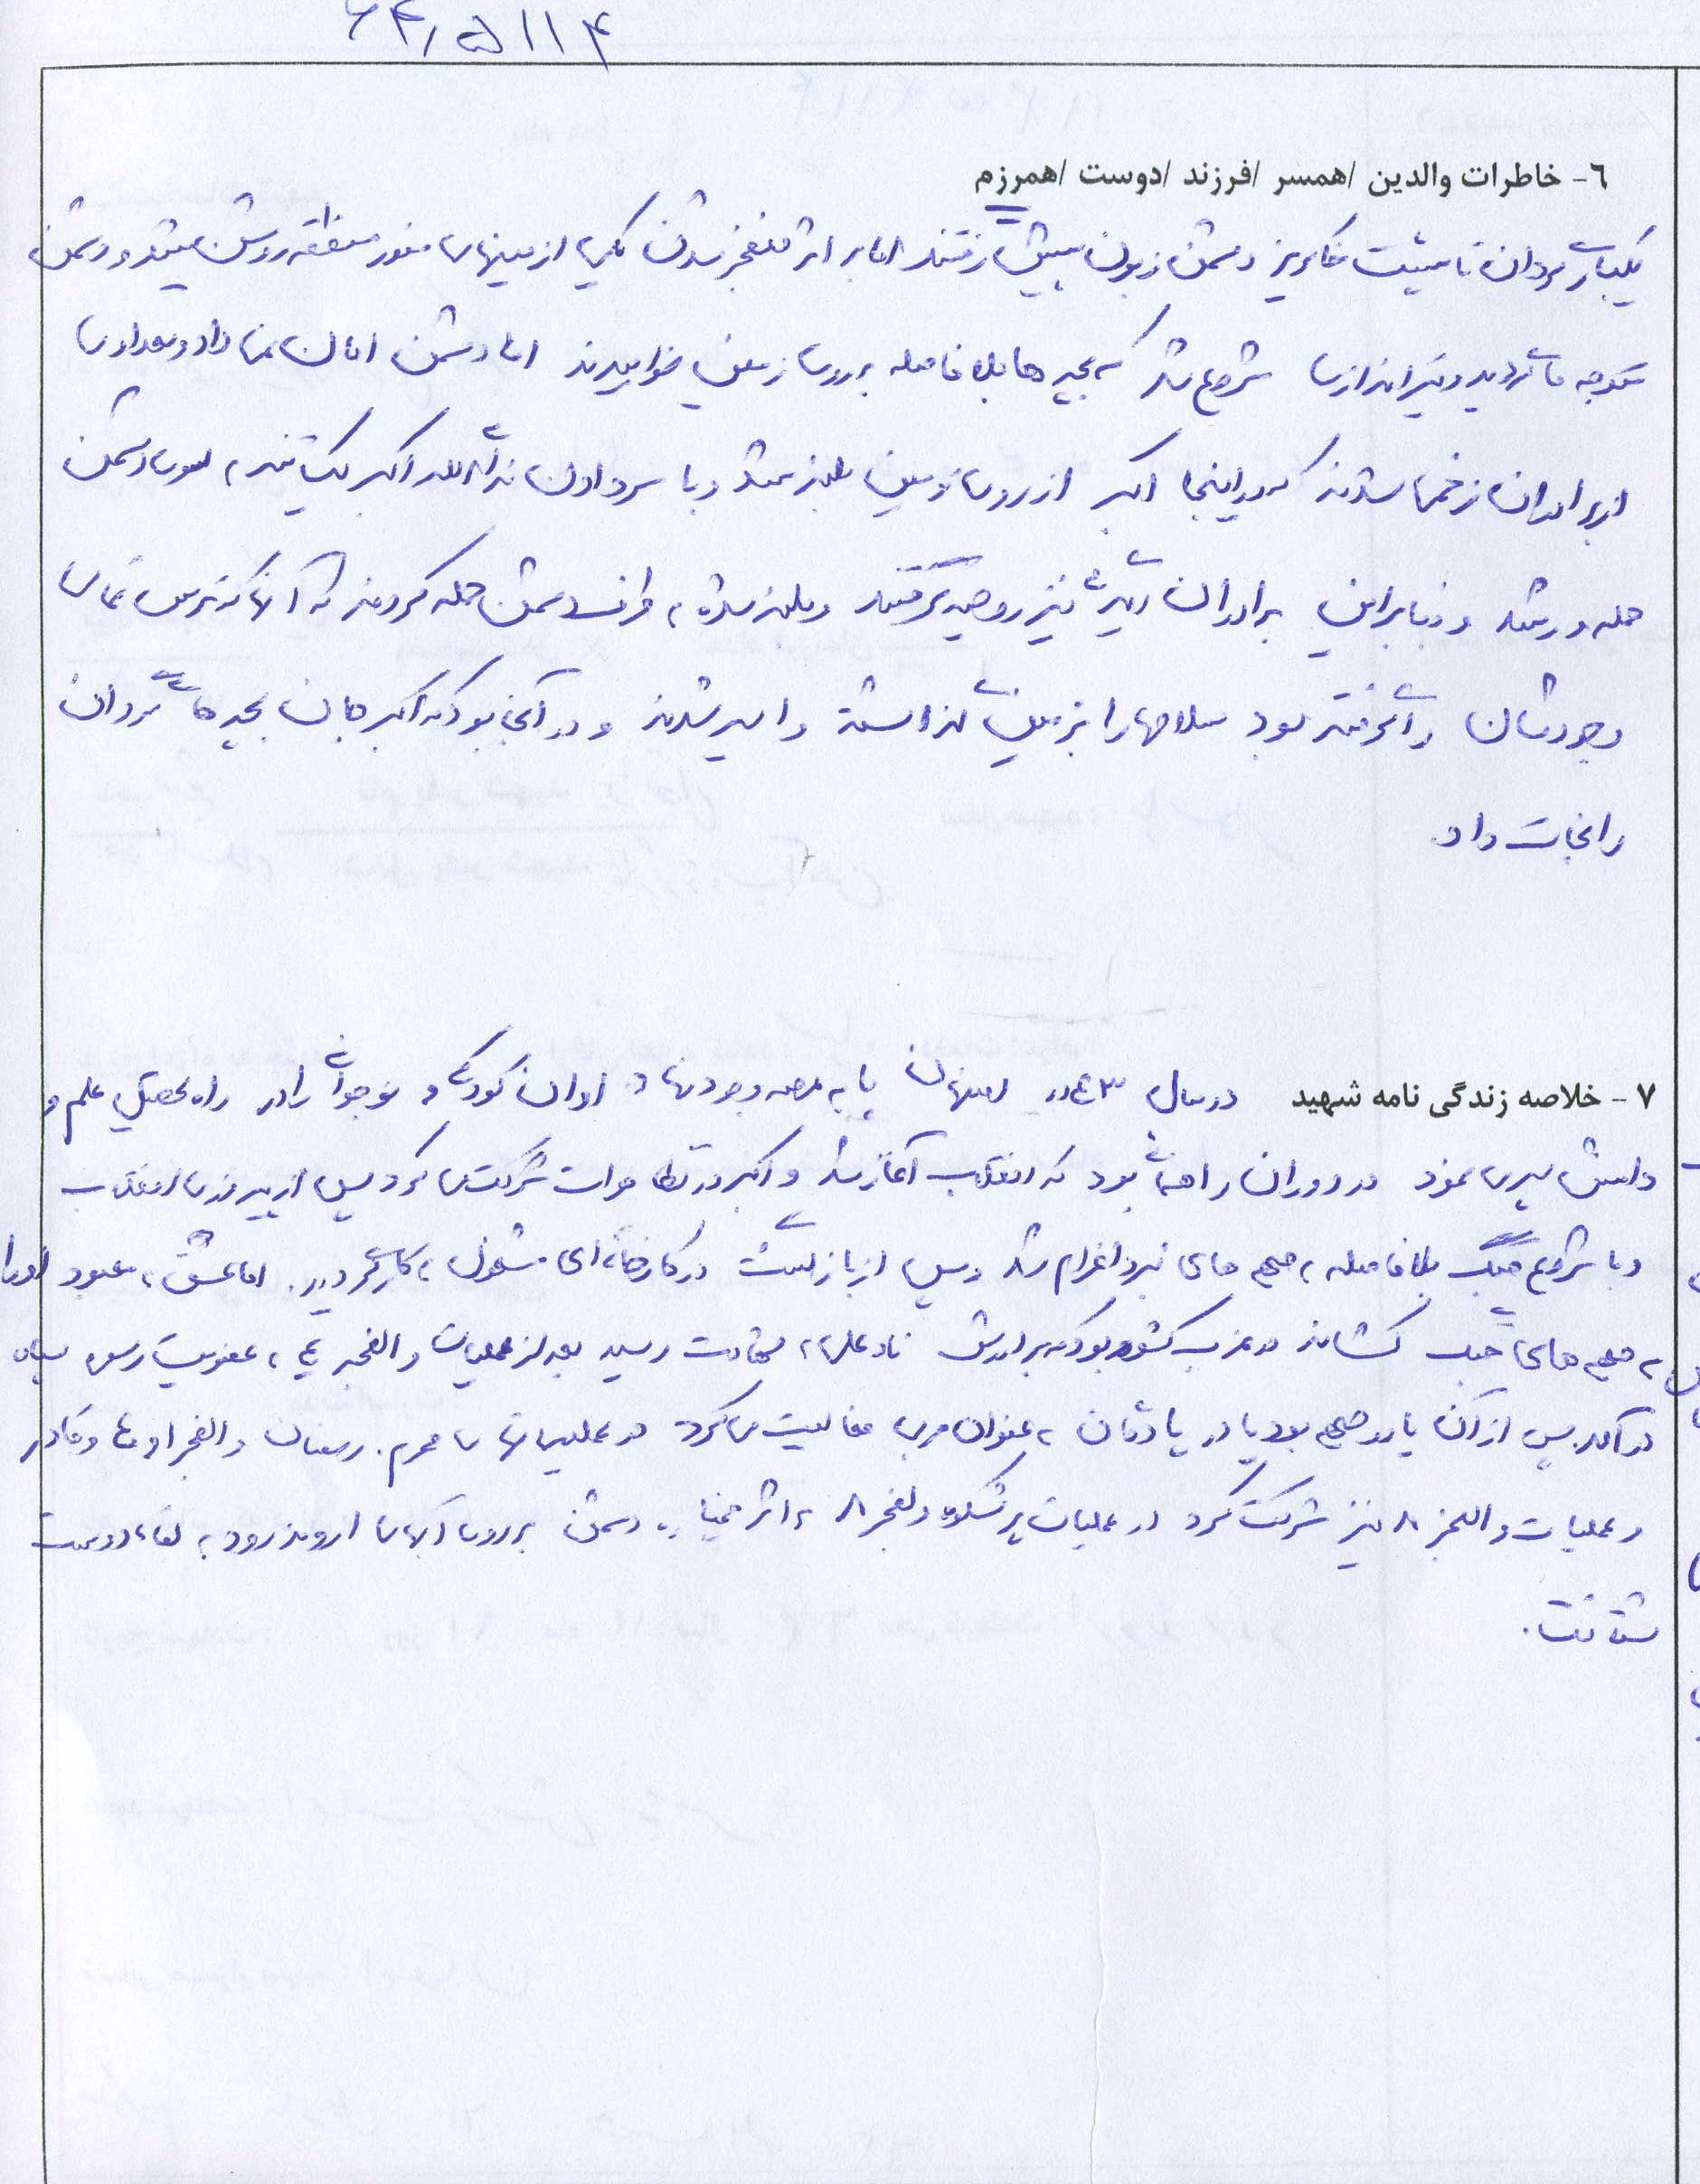 ۶۴٫۵۱۱۴
٦- خاطرات والدین /همسر /فرزند /دوست /همرزم
یکبار گردان تا پشت خاکریز دشمن زبون پیش رفتند اما بر اثر منفجر شدن یکی از مینهای منور منطقه روشن میشد و دشمن
متوجه ما گردید و تیراندازی شروع شد که بچه ها بلافاصله به روی زمین خوابیدند اما دشمن امان نمی داد و تعدادی
از برادران زخمی شدند که در اینجا اکبر از روی زمین بلند شد و با سر دادن ندای الله اکبر یک تنه به سوی دشمن
حمله ور شد و بنابراین برادران دیگر نیز روحیه گرفتند و بلند شده به طرف دشمن حمله کردند که آنها که ترس تمامی
وجودشان را گرفته بود سلاحها را بر زمین گذاشته و اسیر شدند و در آنجا بود که اکبر جان بچه های گردان
را نجات داد.
۷- خلاصه زندگی نامه شهید در سال ۴۳ در اصفهان پا به عرصه وجود نهاد اوان کودکی و نوجوانی را در راه تحصیل علم و
دانش سپری نمود در دوران راهنمایی بود که انقلاب آغاز شد و اکبر در تظاهرات شرکت می کرد پس از پیروزی انقلاب
و با شروع جنگ بلافاصله به جبهه های نبرد اعزام شد و پس از بازگشت در کارخانه ای مشغول به کار گردید. اما عشق به معبود او را
به جبهه های جنگ کشاند در غرب کشور بود که برادرش نادعلی به شهادت رسید بعد از عملیات والفجر ۴ به عضویت رسمی سپاه
در آمد پس از آن یا در جبهه بود یا در پادگان به عنوان مربی فعالیت می کرد در عملیاتهای محرم. رمضان والفجر او ۴ و قادر
و عملیات والفجر ۸ نیز شرکت کرد در عملیات پر شکوه والفجر ۸ به اثر خمپاره دشمن بر روی آبهای اروند رود به لقاء دوست
شتافت.